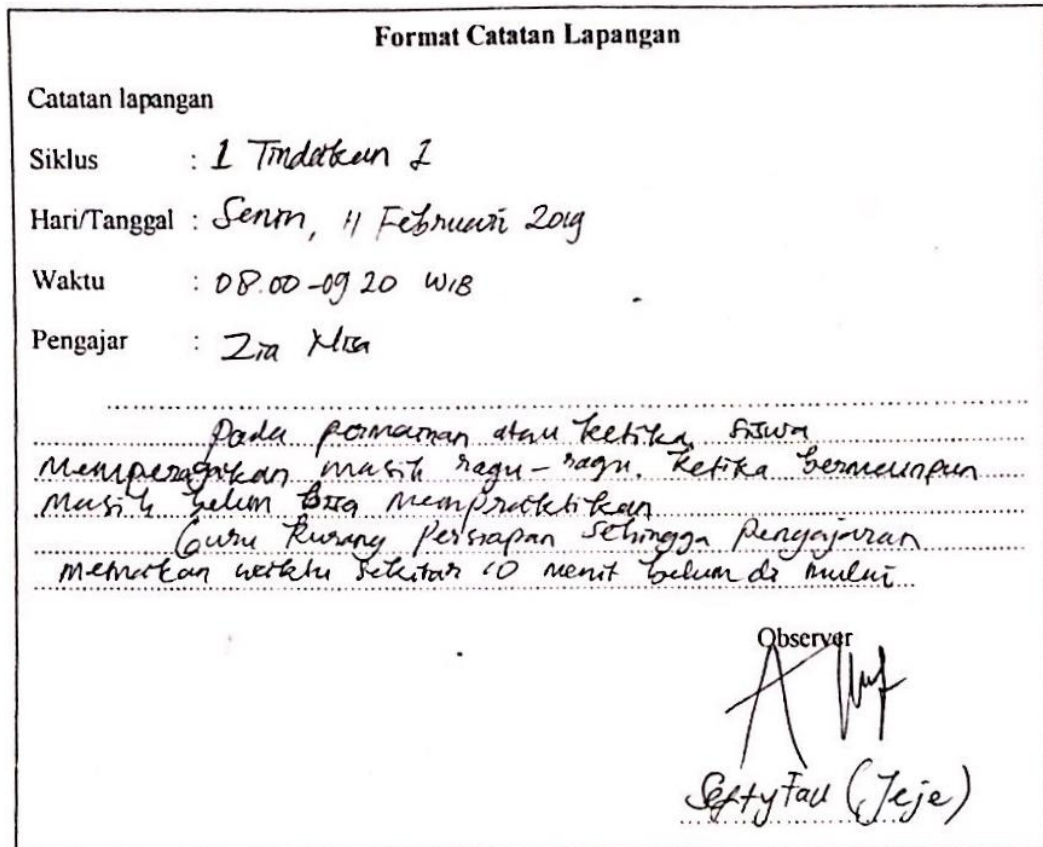 Format Catatan Lapangan
Catatan lapangan
Siklus : 1 Tindakan 1
Hari/Tanggal : Senin, 11 Februari 2019
Waktu : 08.00 - 09 20 WIB
Pengajar : Zia
Pada permainan atau ketika siswa
memperagakan masih ragu-ragu. Ketika bermainpun
masih belum bisa mempraktikan
Guru kurang persiapan sehingga pengajaran
memakan waktu sekitar 10 menit belum di mulai
Observer
(Jeje)